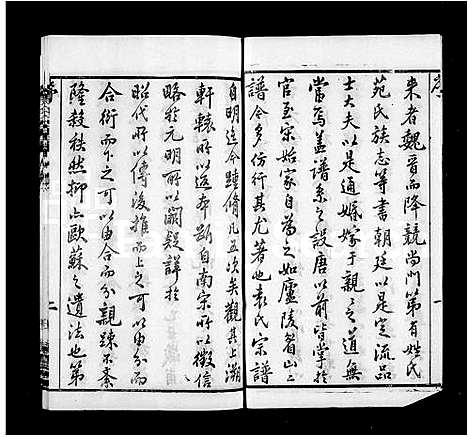 來者魏晉而降競尚門第有姓氏
苑氏族志等書朝廷以是定流品
士大夫以是通婚嫁于親親之道無
當焉蓋譜系之設唐以前皆掌於
官至宋始家自爲之如廬陵眉山之
譜今多仿行其尤著也袁氏宗譜
自明迄今踵脩凡五次矣觀其上溯
軒轅所以返本斷自南宋所以徵信
略於元明所以闕疑詳於
昭代所以傳後推而上之可以由分而
合衍而下之可以由合而分親疎不紊
隆殺秩然抑亦歐蘇之遺法也第
序
一
二